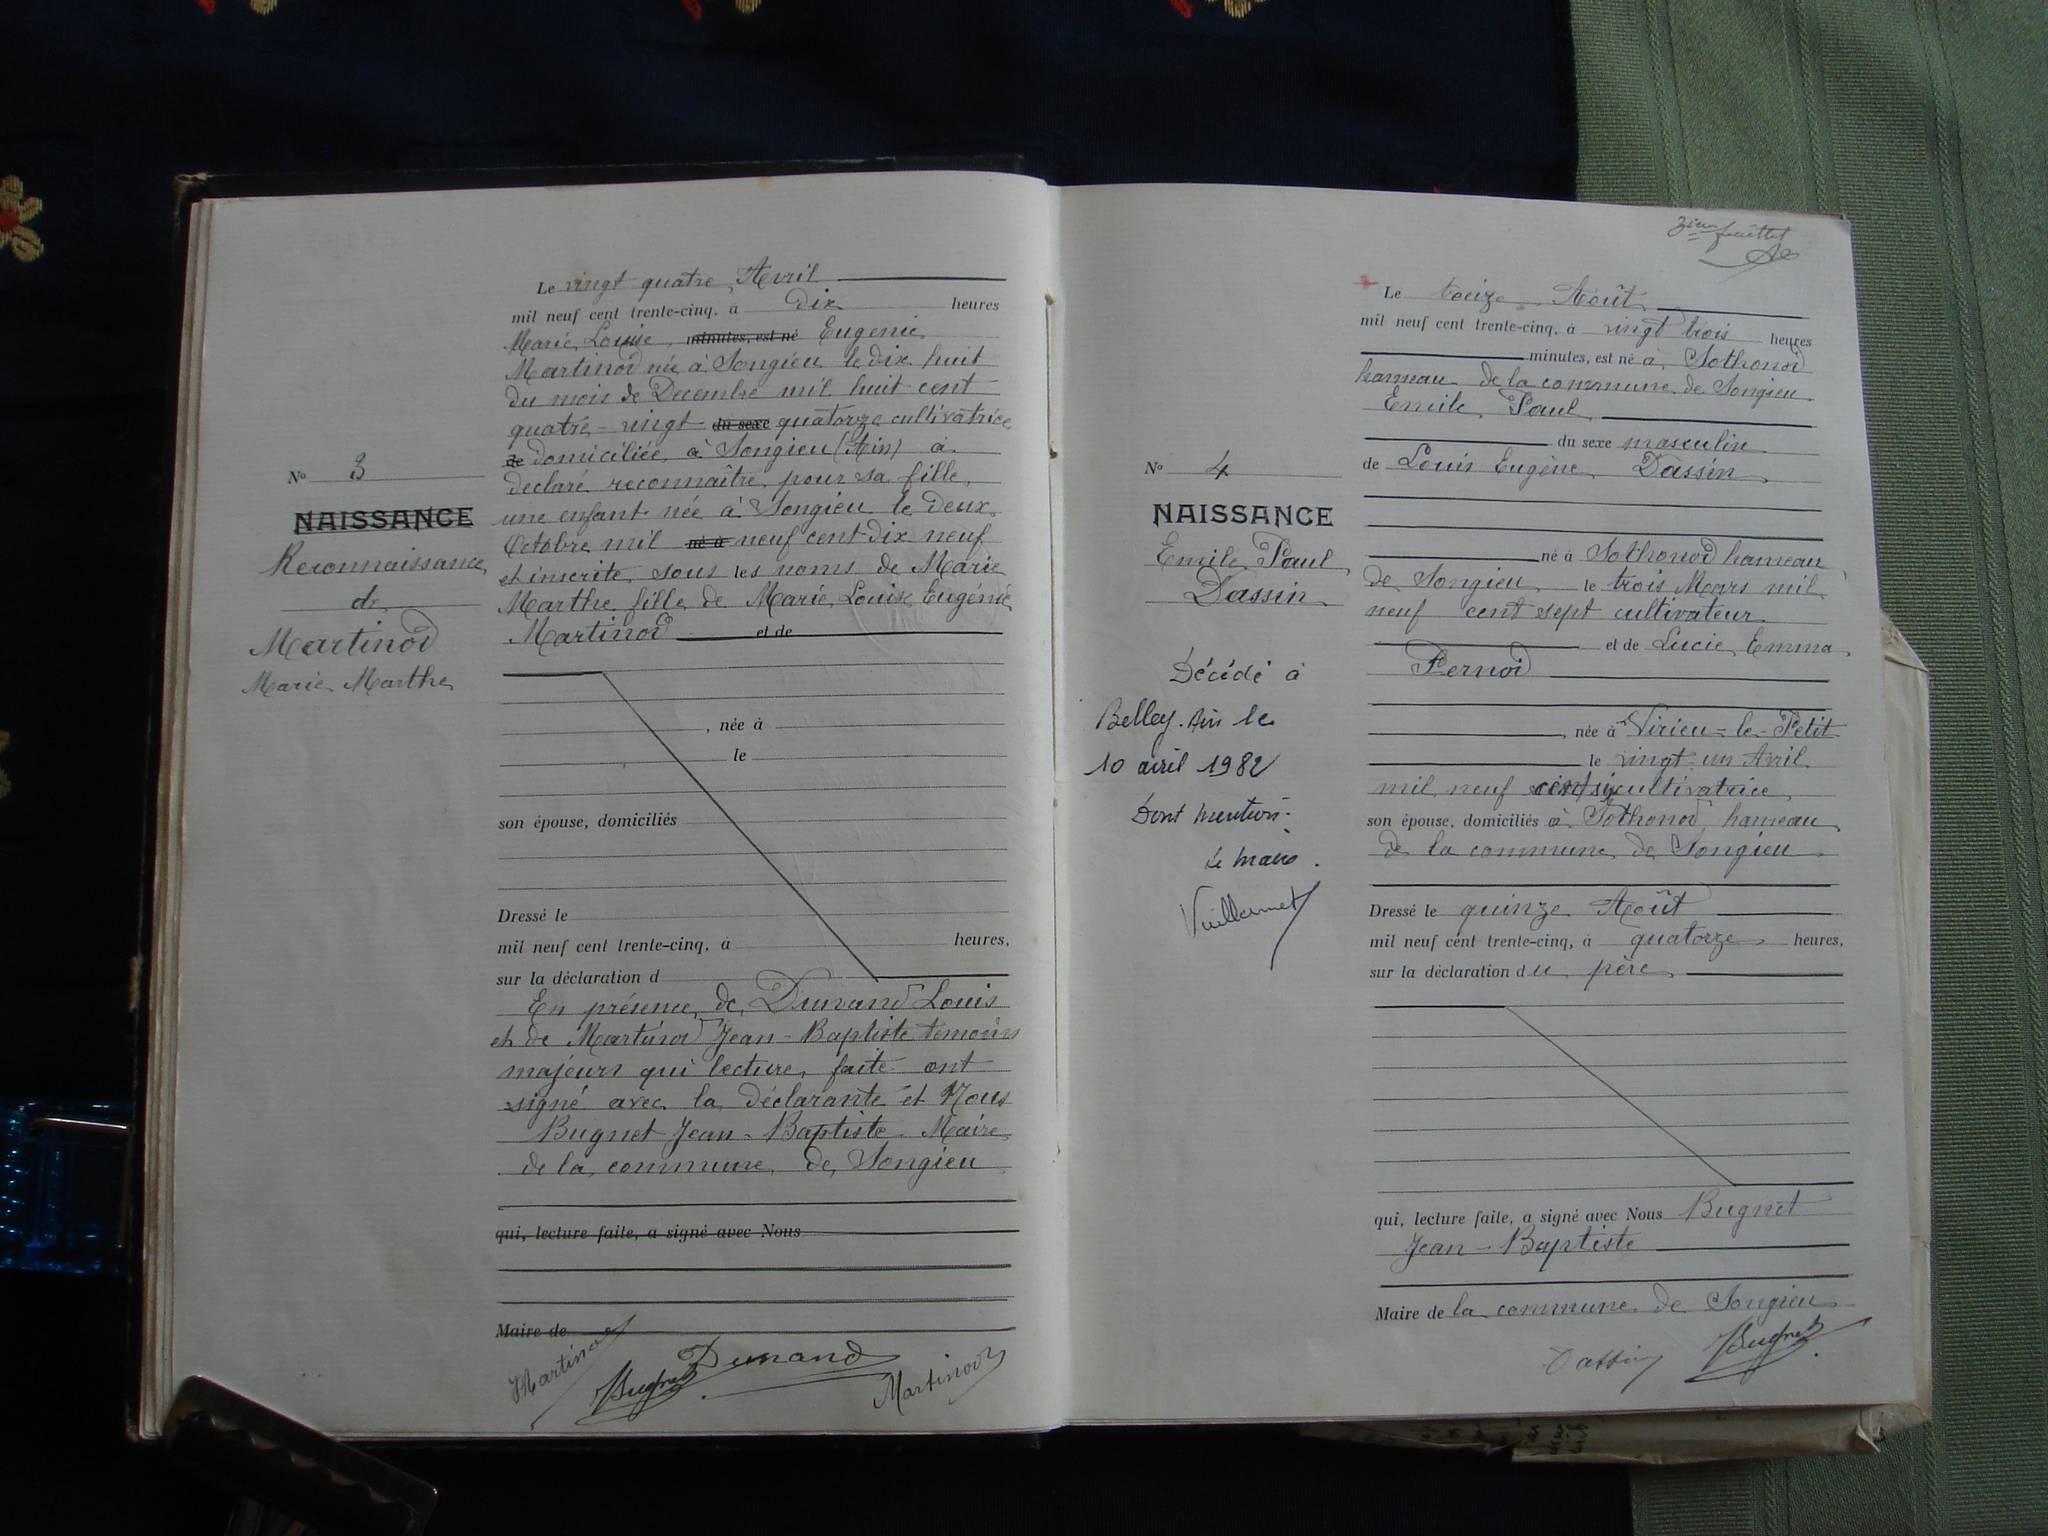 Le vingt quatre Avril
mil neuf cent trente-cinq, à dix heures
Marie Louise minutes, est né Eugenie
Martinod née à Songieu le dix huit
du mois de Decembre mil huit cent
quatre-vingt du sexe quatorze cultivatrice
de domiciliée à Songieu (Ain) a
declaré reconnaître pour sa fille
une enfant née à Songieu le deux
Octobre mil né à neuf cent dix neuf
et inscrite sous les noms de Marie
Marthe fille de Marie Louise Eugénie
Martinod et de
, née à
le
son épouse, domiciliés
Dressé le
mil neuf cent trente-cinq, à heures,
sur la déclaration d
En présence de Durand Louis
et de Martinod Jean-Baptiste temoins
majeurs qui lecture faite ont
signé avec la déclarante et Nous
Bugnet Jean-Baptiste Maire
de la commune de Songieu
qui, lecture faite, a signé avec Nous
Maire de
Martinod
Bugnet
Durand
Martinod
No 3
NAISSANCE
Reconnaissance
de
Martinod
Marie Marthe
3ième feuillet
Le treize Août
mil neuf cent trente-cinq, à vingt trois heures
minutes, est né à Sothonod
hameau de la commune de Songieu
Emile Paul
du sexe masculin
de Louis Eugène Dassin
né à Sothonod hameau
de Songieu le trois Mars mil
neuf cent sept cultivateur
et de Lucie Emma
Pernod
, née à Virieu-le-Petit
le vingt-un Avril
mil neuf cent six cultivatrice
son épouse, domiciliés à Sothonod hameau
de la commune de Songieu
Dressé le quinze Août
mil neuf cent trente-cinq, à quatorze heures,
sur la déclaration du père
qui, lecture faite, a signé avec Nous Bugnet
Jean-Baptiste
Maire de la commune de Songieu
Dassin
Bugnet
No 4
NAISSANCE
Emile Paul
Dassin
Décédé à
Belley. Ain le
10 avril 1982
Dont mention.
Le maire.
Vuillermet